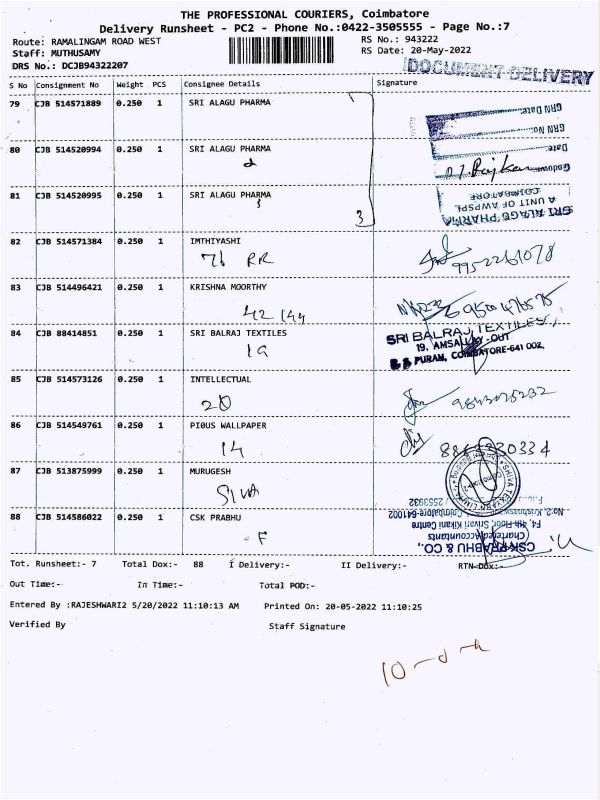 THE PROFESSIONAL COURIERS, Coimbatore
Delivery Runsheet - PC2 - Phone No.:0422-3505555 - Page No.:7
Route: RAMALINGAM ROAD WEST
RS No.: 943222
Staff: MUTHUSAMY
RS Date: 20-May-2022
DRS No.: DCJB94322207
DOCUMENT DELIVERY
S No Consignment No Weight PCS Consignee Details Signature
79 CJB 514571889 0.250 1 SRI ALAGU PHARMA
GRN Date:
GRN No.
80 CJB 514520994 0.250 1 SRI ALAGU PHARMA
2
Date:
81 CJB 514520995 0.250 1 SRI ALAGU PHARMA
3
SRI ALAGU PHARMA
A UNIT OF AWPSPL
COIMBATORE
82 CJB 514571384 0.250 1 IMTHIYASHI
76 RR
9952261078
83 CJB 514496421 0.250 1 KRISHNA MOORTHY
42/44
84 CJB 88414851 0.250 1 SRI BALRAJ TEXTILES
19
SRI BALRAJ TEXTILES,
19,
PURAM, COIMBATORE-641 002.
85 CJB 514573126 0.250 1 INTELLECTUAL
20
86 CJB 514549761 0.250 1 PIOUS WALLPAPER
14
87 CJB 513875999 0.250 1 MURUGESH
SIVA
SHIVA TEXYARN LIMITED
88 CJB 514586022 0.250 1 CSK PRABHU
F
CSK PRABHU & CO.,
Chartered Accountants
F4, 4th Floor, Srivari Kikani Centre
No.2, Krishnaswamy Coimbatore-641002
2553932
Tot. Runsheet:- 7 Total Dox:- 88 I Delivery:- II Delivery:- RTN Dox:-
Out Time:- In Time:- Total POD:-
Entered By :RAJESHWARI2 5/20/2022 11:10:13 AM Printed On: 20-05-2022 11:10:25
Verified By Staff Signature